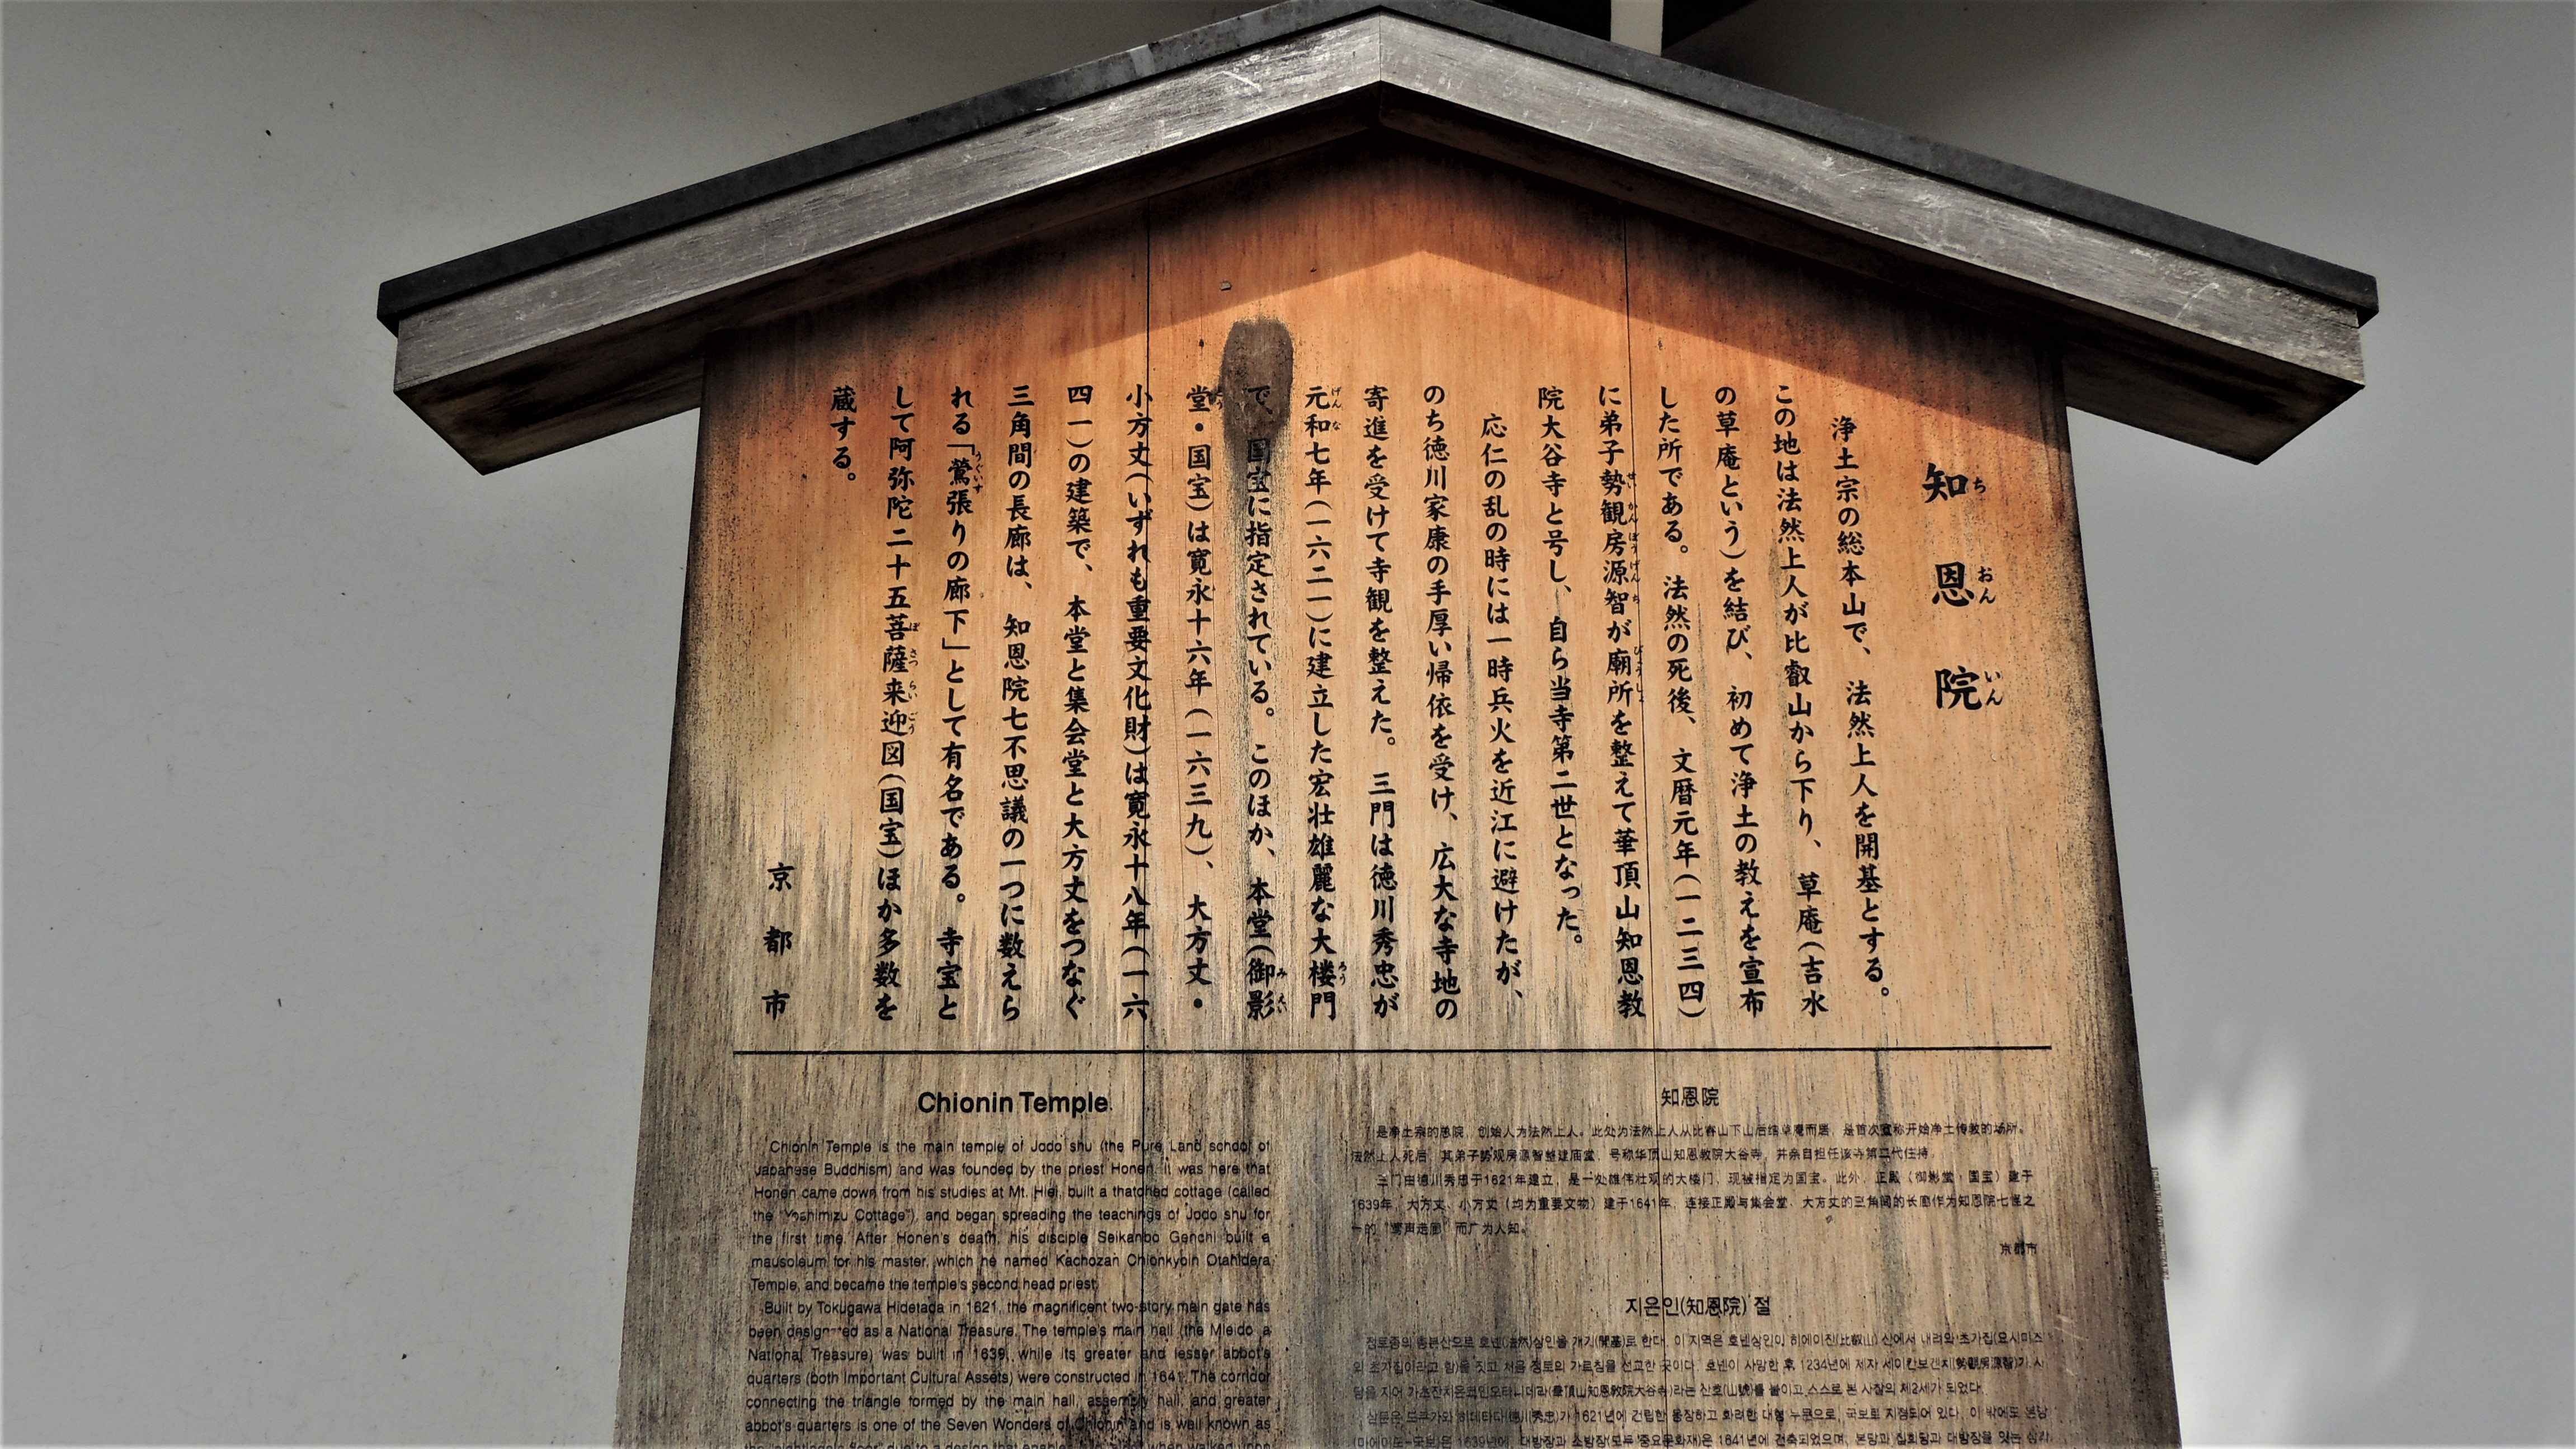 知恩院
浄土宗の総本山で、法然上人を開基とする。
この地は法然上人が比叡山から下り、草庵(吉水
の草庵という)を結び、初めて浄土の教えを宣布
した所である。法然の死後、文暦元年(一二三四)
に弟子勢観房源智が廟所を整えて華頂山知恩教
院大谷寺と号し、自ら当寺第二世となった。
応仁の乱の時には一時兵火を近江に避けたが、
のち徳川家康の手厚い帰依を受け、広大な寺地の
寄進を受けて寺観を整えた。三門は徳川秀忠が
元和七年(一六二一)に建立した宏壮雄麗な大楼門
で、国宝に指定されている。このほか、本堂(御影
堂・国宝)は寛永十六年(一六三九)、大方丈・
小方丈(いずれも重要文化財)は寛永十八年(一六
四一)の建築で、本堂と集会堂と大方丈をつなぐ
三角間の長廊は、知恩院七不思議の一つに数えら
れる「鶯張りの廊下」として有名である。寺宝と
して阿弥陀二十五菩薩来迎図(国宝)ほか多数を
蔵する。
京都市
Chionin Temple
Chionin Temple is the main temple of Jodo shu (the Pure Land school of
Japanese Buddhism) and was founded by the priest Honen. It was here that
Honen came down from his studies at Mt. Hiei, built a thatched cottage (called
the "Yoshimizu Cottage"), and began spreading the teachings of Jodo shu for
the first time. After Honen's death, his disciple Seikanbo Genchi built a
mausoleum for his master, which he named Kachozan Chionkyoin Otanidera
Temple, and became the temple's second head priest.
Built by Tokugawa Hidetada in 1621, the magnificent two-story main gate has
been designated as a National Treasure. The temple's main hall (the Mieido, a
National Treasure) was built in 1639, while its greater and lesser abbot's
quarters (both Important Cultural Assets) were constructed in 1641. The corridor
connecting the triangle formed by the main hall, assembly hall, and greater
abbot's quarters is one of the Seven Wonders of Chionin and is well known as
知恩院
是净土宗的总院，创始人为法然上人。此处为法然上人从比睿山下山后结草庵而居，是首次宣称开始净土传教的场所。
法然上人死后，其弟子势观房源智整建庙堂，号称华顶山知恩教院大谷寺，并亲自担任该寺第二代住持。
三门由德川秀忠于1621年建立，是一处雄伟壮观的大楼门，现被指定为国宝。此外，正殿（御影堂·国宝）建于
1639年，大方丈、小方丈（均为重要文物）建于1641年，连接正殿与集会堂、大方丈的三角间的长廊作为知恩院七怪之
一的"莺声走廊"而广为人知。
京都市
지은인(知恩院) 절
정토종의 총본산으로 호넨(法然)상인을 개기(開基)로 한다. 이 지역은 호넨상인이 히에이잔(比叡山) 산에서 내려와 초가집(요시미즈
의 초가집이라고 함)을 짓고 처음 정토의 가르침을 선교한 곳이다. 호넨이 사망한 후, 1234년에 제자 세이칸보겐치(勢観房源智)가 사
당을 지어 가초잔치온쿄인오타니데라(華頂山知恩教院大谷寺)라는 산호(山號)를 붙이고 스스로 본 사찰의 제2세가 되었다.
삼문은 도쿠가와 히데타다(徳川秀忠)가 1621년에 건립한 웅장하고 화려한 대형 누문으로, 국보로 지정되어 있다. 이 밖에도 본당